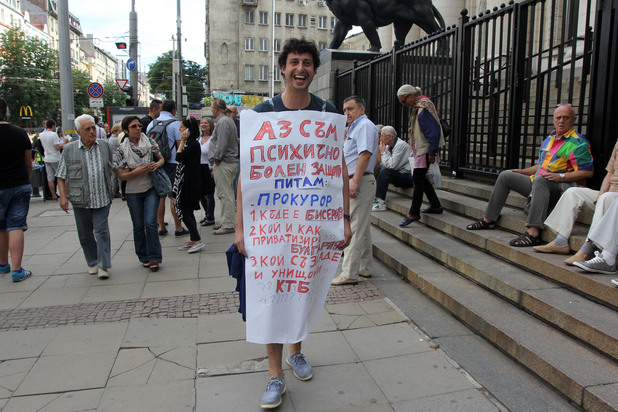 АЗ СЪМ
ПСИХИЧНО
БОЛЕН ЗАЩОТО
ПИТАМ:
ПРОКУРОР
1 КЪДЕ Е БИСЕРОВ
2 КОЙ И КАК
ПРИВАТИЗИР
БЪЛГАРИЯ
3 КОЙ СЪЗДАДЕ
И УНИЩОЖИ
КТБ